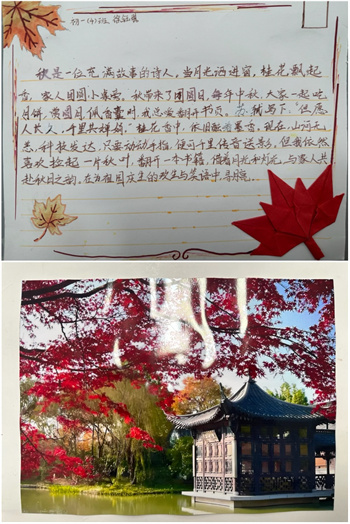 初一(4)班
秋是一位充满故事的诗人，当月光洒进窗，桂花飘起
香，家人团圆小喜琴。秋带来了团圆日，每年中秋，大家一起吃
月饼，赏圆月，佩香囊时，我总爱翻开书页。苏轼写下，“但愿
人长久，千里共婵娟。”桂花香中，依旧 着 香。现在，山河无
恙，科技发达，只要动动手指，便可千里传音送影，但我依然
喜欢捡起一片秋叶，翻开一本书籍，借着月光和灯光，与家人共
赴秋日之韵，在为祖国庆生的欢生与笑语中寻月境。